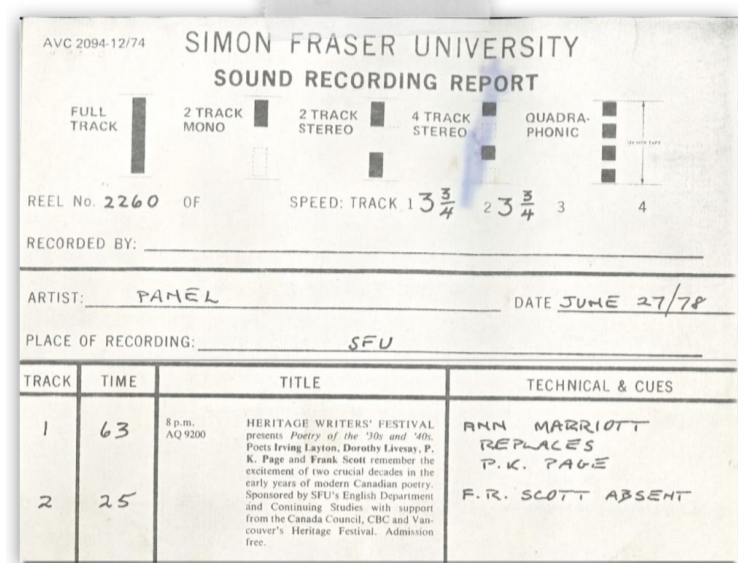 AVC 2094-12/74 SIMON FRASER UNIVERSITY
SOUND RECORDING REPORT
FULL TRACK 2 TRACK MONO 2 TRACK STEREO 4 TRACK STEREO QUADRA-PHONIC
REEL No. 2260 OF SPEED: TRACK 1 3 3/4 2 3 3/4 3 4
RECORDED BY:
ARTIST: PANEL DATE JUNE 27/78
PLACE OF RECORDING: SFU
TRACK TIME TITLE TECHNICAL & CUES
1 63
8 p.m.
AQ 9200
HERITAGE WRITERS' FESTIVAL
presents Poetry of the '30s and '40s.
Poets Irving Layton, Dorothy Livesay, P.
K. Page and Frank Scott remember the
excitement of two crucial decades in the
early years of modern Canadian poetry.
Sponsored by SFU's English Department
and Continuing Studies with support
from the Canada Council, CBC and Van-
couver's Heritage Festival. Admission
free.
ANN MARRIOTT
REPLACES
P.K. PAGE
2 25
F.R. SCOTT ABSENT